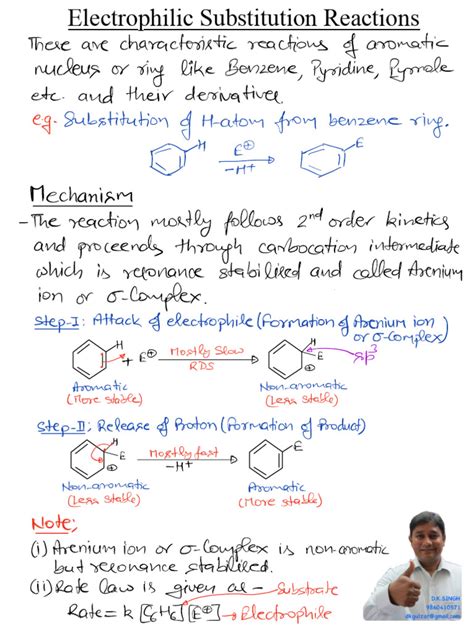 Electrophilic Substitution Reactions
These are characteristic reactions of aromatic
nucleus or ring like Benzene, Pyridine, Pyrrole
etc. and their derivatives.
eg. Substitution of H-atom from benzene ring.
H E⊕ E
-H⁺
Mechanism
- The reaction mostly follows 2nd order kinetics
and proceends through carbocation intermediate
which is resonance stabilised and called Arenium
ion or σ-Complex.
Step-I: Attack of electrophile (Formation of Arenium ion
or σ-Complex)
H + E⊕ Mostly Slow H E sp³
RDS ⊕
Aromatic Non-aromatic
(More stable) (Less stable)
Step-II: Release of Proton (Formation of Product)
H E Mostly fast E
⊕ -H⁺
Non-aromatic Aromatic
(Less stable) (More stable)
Note:
(i) Arenium ion or σ-Complex is non-aromatic
but resonance stabilised.
(ii) Rate law is given as - Substrate
Rate = k [C6H6][E⊕] → Electrophile
D.K.SINGH
9860410571
dkgulzar@gmail.com